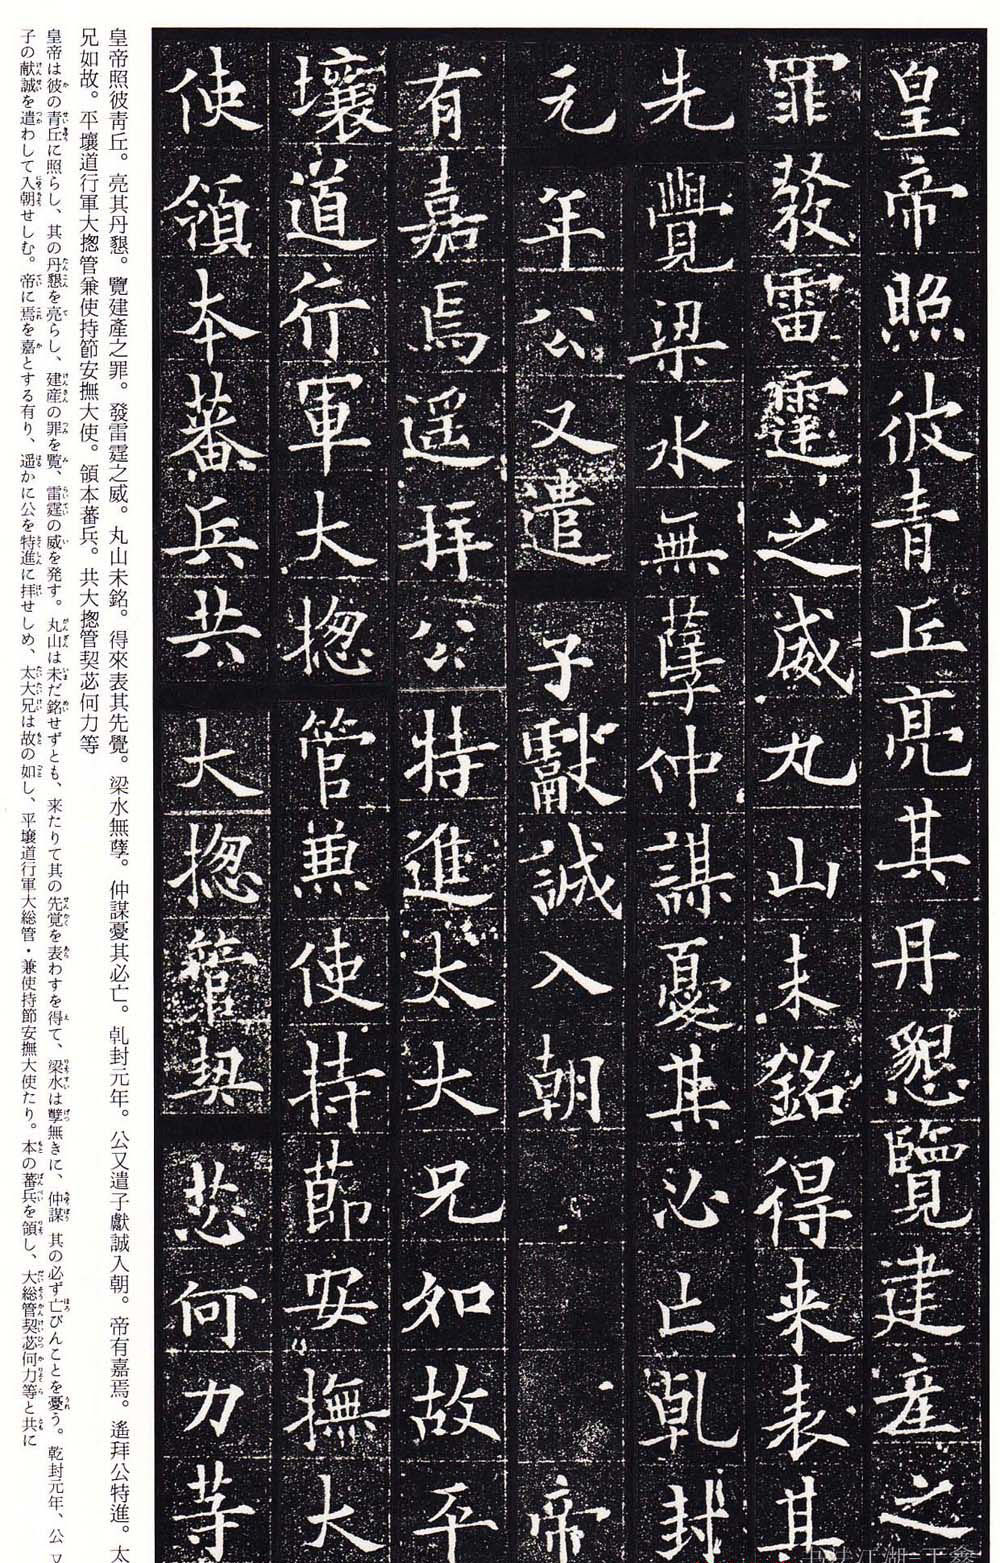 皇帝照彼青丘亮其丹懇覽建產之
罪發雷霆之威丸山未銘得来表其
先覺梁水無孽仲謀憂其必亡乹封
元年公又遣子獻誠入朝帝
有嘉焉遥拜公特進太大兄如故平
壤道行軍大揔管兼使持節安撫大
使領本蕃兵共大揔管契苾何力等
皇帝照彼靑丘。亮其丹懇。覽建產之罪。發雷霆之威。丸山未銘。得來表其先覺。梁水無孽。仲謀憂其必亡。乹封元年。公又遣子獻誠入朝。帝有嘉焉。遙拜公特進。太
兄如故。平壤道行軍大揔管兼使持節安撫大使。領本蕃兵。共大揔管契苾何力等
皇帝は彼の青丘に照らし、其の丹懇を亮らし、建産の罪を覧、雷霆の威を発す。丸山は未だ銘せずとも、来たりて其の先覚を表わすを得て、梁水は孽無きに、仲謀 其の必ず亡びんことを憂う。乾封元年、公又
子の献誠を遣わして入朝せしむ。帝に焉を嘉とする有り、遥かに公を特進に拝せしめ、太大兄は故の如し、平壌道行軍大総管・兼使持節安撫大使たり。本の蕃兵を領し、大総管契苾何力等と共に